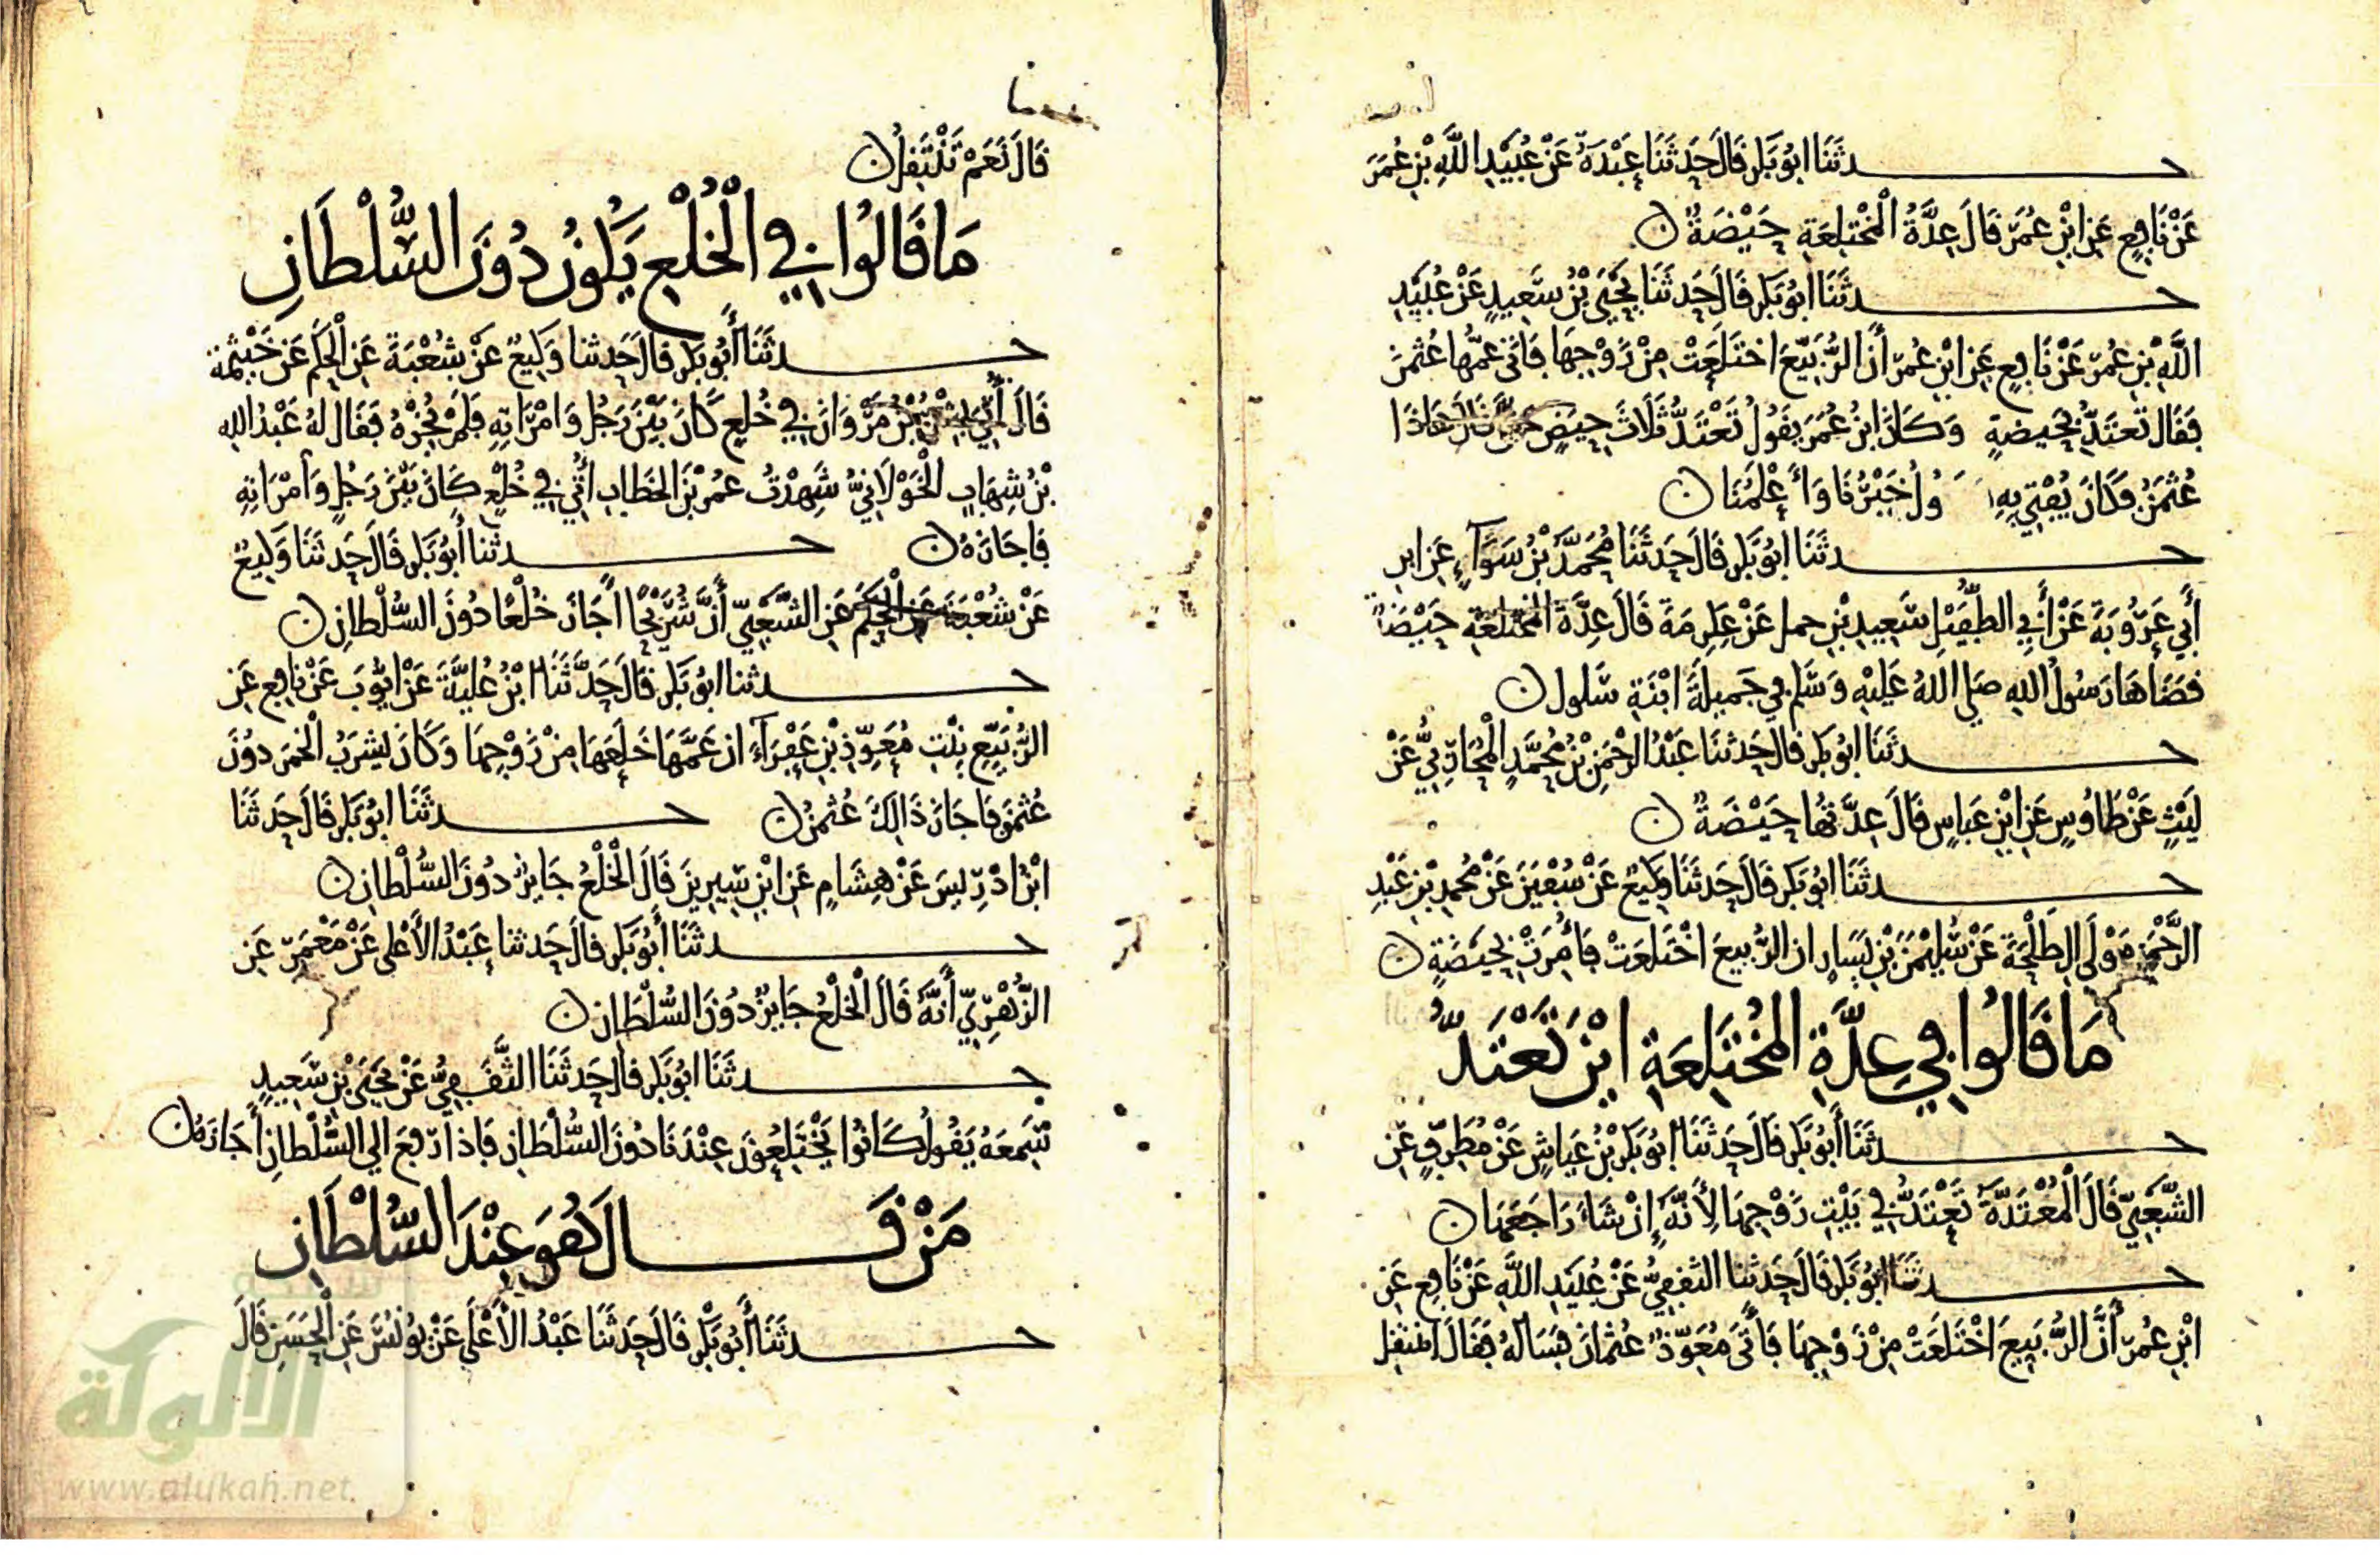 حدثنا ابو بكر قال حدثنا عبدة عن عبيد الله بن عمر
عن نافع عن ابن عمر قال عدة المختلعة حيضة ن
حدثنا ابو بكر قال حدثنا يحيى بن سعيد عن عبيد
الله بن عمر عن نافع عن ابن عمر أن الربيع اختلعت من زوجها فاتى عمها عثمن
فقال تعتد بحيضة وكان ابن عمر يقول تعتد ثلاث حيض حتى قال هاذا
عثمن وكان يفتي به خيرنا وأعلمنا ن
حدثنا ابو بكر قال حدثنا محمد بن سواء عن ابن
أبي عروبة عن أبي الطفيل سعيد بن حمل عن عكرمة قال عدة المختلعة حيضة
قضاها رسول الله صلى الله عليه وسلم في جميلة ابنة سلول ن
حدثنا ابو بكر قال حدثنا عبد الرحمن بن محمد المحاربي عن
ليث عن طاوس عن ابن عباس قال عدتها حيضة ن
حدثنا ابو بكر قال حدثنا وكيع عن سفين عن محمد بن عبد
الرحمن مولى ال طلحة عن سليمن بن يسار ان الربيع اختلعت فأمرت بحيضة ن
ما قالوا في عدة المختلعة اين تعتد
حدثنا أبو بكر قال حدثنا ابو بكر بن عياش عن مطرف عن
الشعبي قال المعتدة تعتد في بيت زوجها لأنه إن شاء راجعها ن
حدثنا ابو بكر قال حدثنا الثقفي عن عبيد الله عن نافع عن
ابن عمر أن الربيع اختلعت من زوجها فأتى معوذ عثمان فسأله فقال اتنتقل
قال نعم تنتقل ن
ما قالوا في الخلع يكون دون السلطان
حدثنا أبو بكر قال حدثنا وكيع عن شعبة عن الحكم عن خيثمة
قال أتي بشر بن مروان في خلع كان بين رجل وامرأته فلم يجزه فقال له عبد الله
بن شهاب الخولاني شهدت عمر بن الخطاب أتي في خلع كان بين رجل وامرأته
فاجازه ن حدثنا أبو بكر قال حدثنا وكيع
عن شعبة عن الحكم عن الشعبي أن شريحا أجاز خلعا دون السلطان ن
حدثنا ابو بكر قال حدثنا ابن علية عن ايوب عن نافع عن
الربيع بنت معوذ بن عفراء ان عمها خلعها من زوجها وكان يشرب الخمر دون
عثمن فاجاز ذالك عثمن ن حدثنا ابو بكر قال حدثنا
ابن ادريس عن هشام عن ابن سيرين قال الخلع جايز دون السلطان ن
حدثنا أبو بكر قال حدثنا عبد الأعلى عن معمر عن
الزهري أنه قال الخلع جايز دون السلطان ن
حدثنا ابو بكر قال حدثنا الثقفي عن يحيى بن سعيد
سمعه يقول كانوا يختلعون عندنا دون السلطان فاذا رفع الى السلطان أجازه ن
من قال هو عند السلطان
حدثنا أبو بكر قال حدثنا عبد الأعلى عن يونس عن الحسن قال
شبكة
الألوكة
www.alukah.net